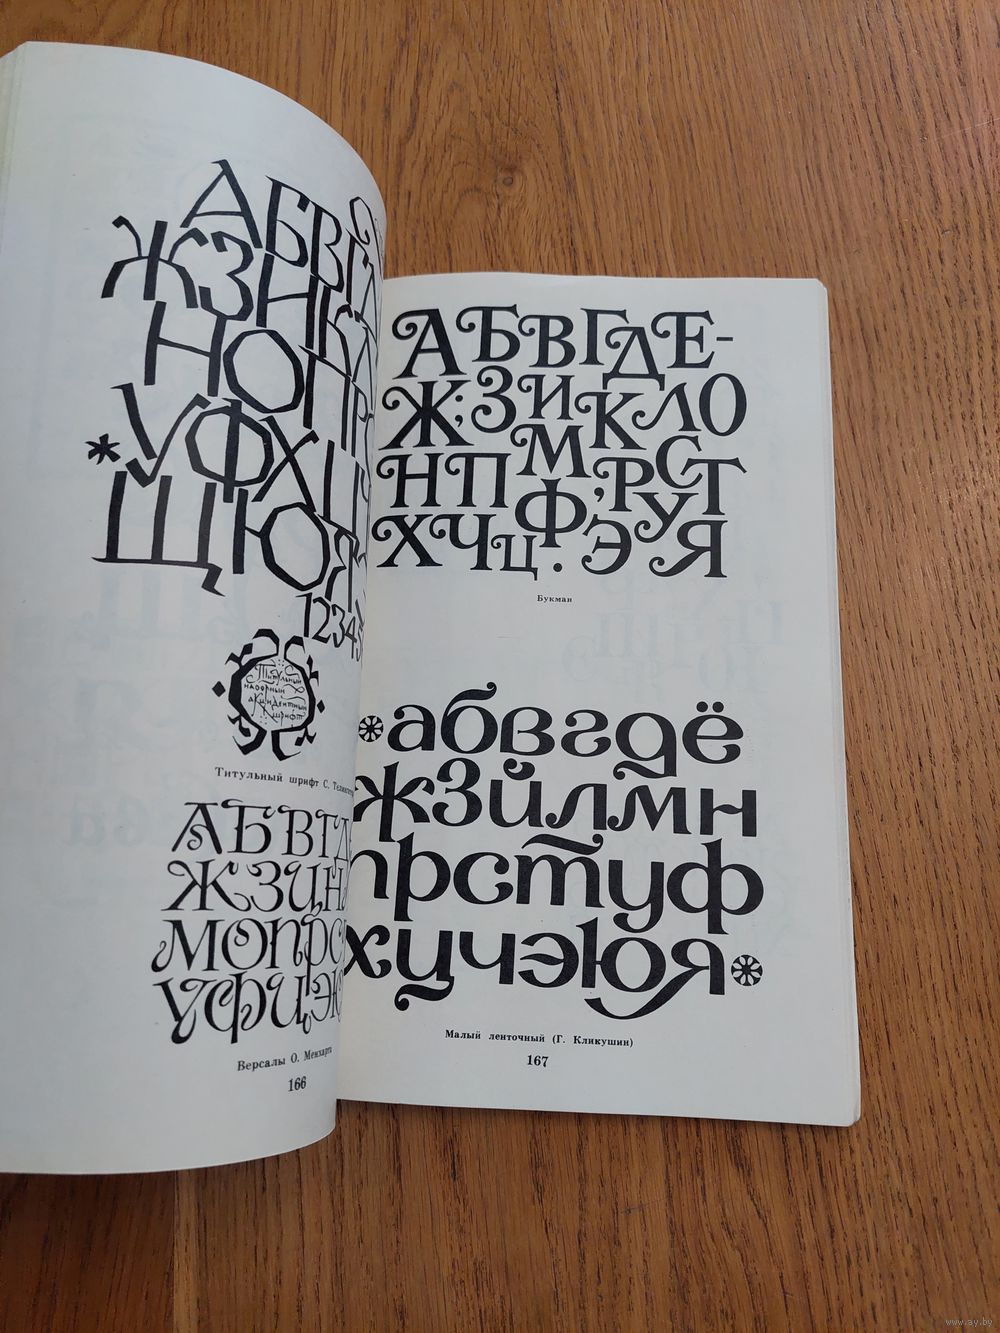 АБВГД
ЖЗИК
НОП
*УФХЦЧ
ЩЮ
12345
Титульный
наборный
акцидентный
шрифт
Титульный шрифт С.
АБВГД
ЖЗИН
МОПРС
УФЦЭ
Версалы О. Менхарта
166
АБВГДЕ-
Ж;ЗИКЛО
НПМ,РСТ
ХЧЦФ.ЭУЯ
Букман
абвгдё
жзйлмн
прстуф
хцчэюя
Малый ленточный (Г. Кликушин)
167
www.ay.by